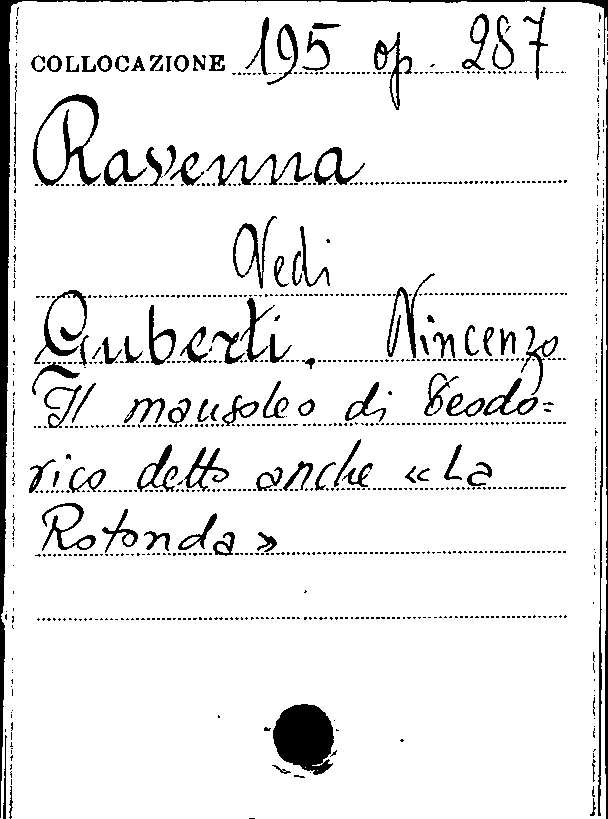 COLLOCAZIONE 195 op. 287
Ravenna
Vedi
Guberti, Vincenzo
Il mausoleo di Teodo=
rico detto anche «La
Rotonda»